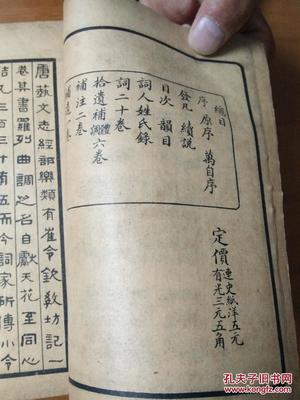 定價
連史紙洋五元
有光三元五角
總目
序 原序 萬自序
發凡 續說
目次 韻目
詞人姓氏錄
詞二十卷
拾遺補體調六卷
補注二卷
唐藝文志經部樂類有崔令欽教坊記一
卷其書羅列曲調之名自獻天花至同心
結凡三百三十有五而今詞家所傳小令